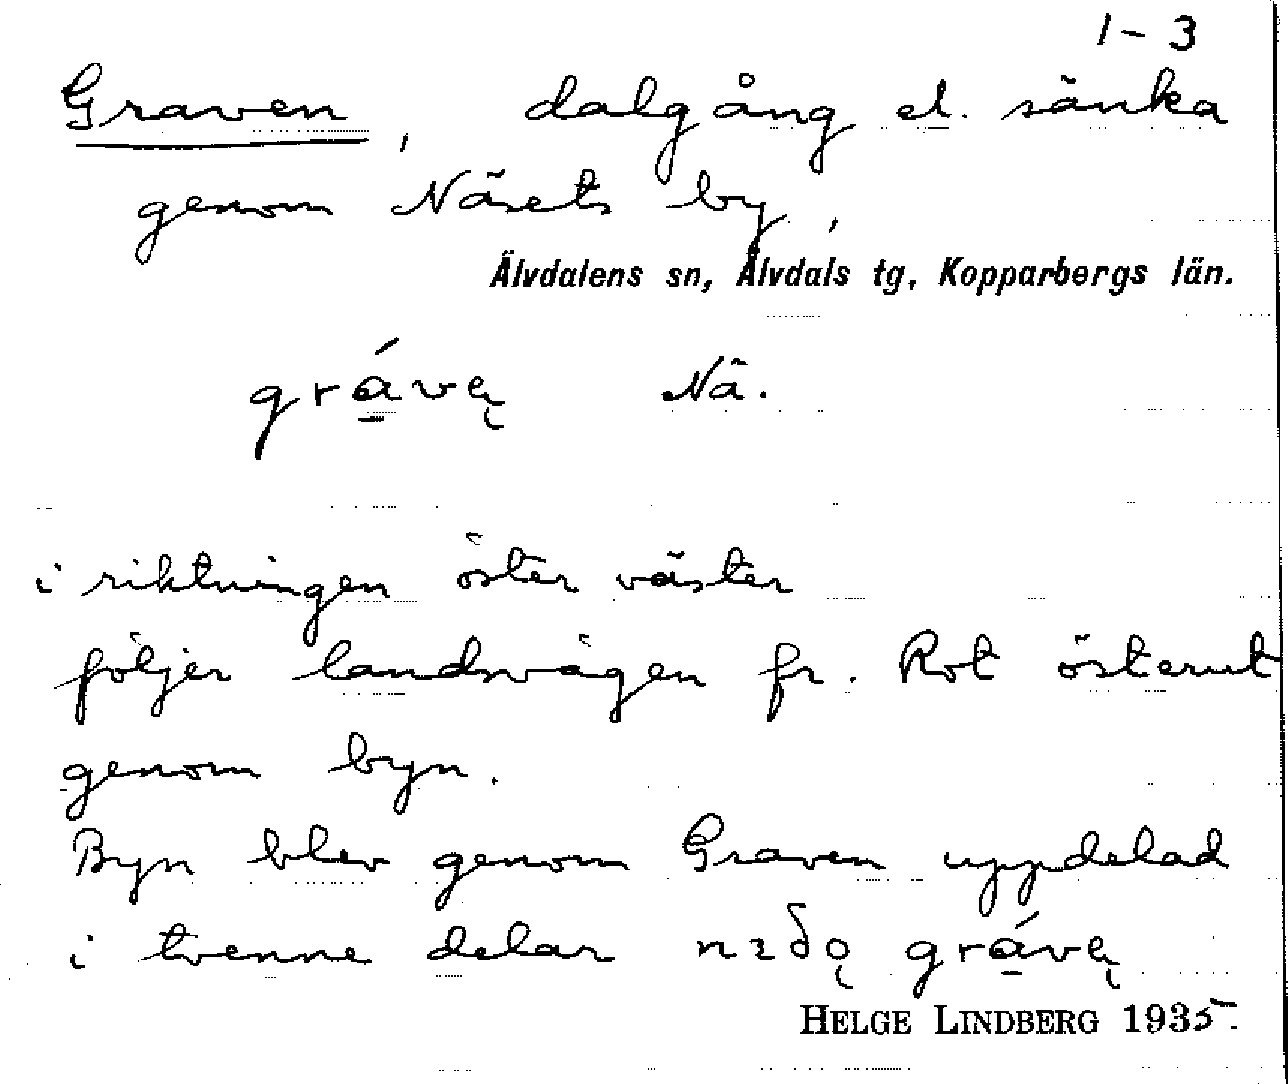 1-3
Graven, dalgång el. sänka
genom Näsets by,
Älvdalens sn, Älvdals tg, Kopparbergs län.
grávę Nä.
i riktningen öster väster
följer landsvägen fr. Rot österut
genom byn.
Byn blev genom Graven uppdelad
i tvenne delar nıðǫ grávę
HELGE LINDBERG 1935.